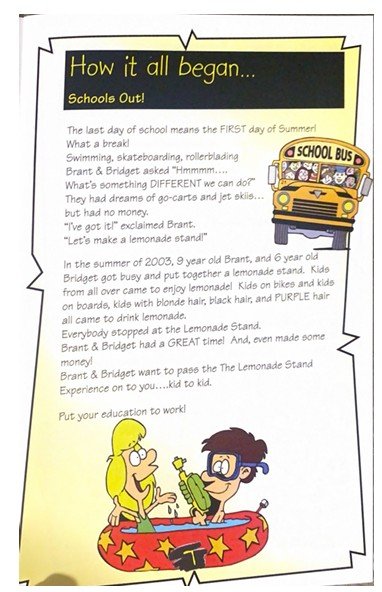 How it all began...
Schools Out!
The last day of school means the FIRST day of Summer!
What a break!
Swimming, skateboarding, rollerblading
Brant & Bridget asked "Hmmmm....
What's something DIFFERENT we can do?"
They had dreams of go-carts and jet skiis...
but had no money.
"I've got it!" exclaimed Brant.
"Let's make a lemonade stand!"
SCHOOL BUS
In the summer of 2003, 9 year old Brant, and 6 year old
Bridget got busy and put together a lemonade stand. Kids
from all over came to enjoy lemonade! Kids on bikes and kids
on boards, kids with blonde hair, black hair, and PURPLE hair
all came to drink lemonade.
Everybody stopped at the Lemonade Stand.
Brant & Bridget had a GREAT time! And, even made some
money!
Brant & Bridget want to pass the The Lemonade Stand
Experience on to you....kid to kid.
Put your education to work!